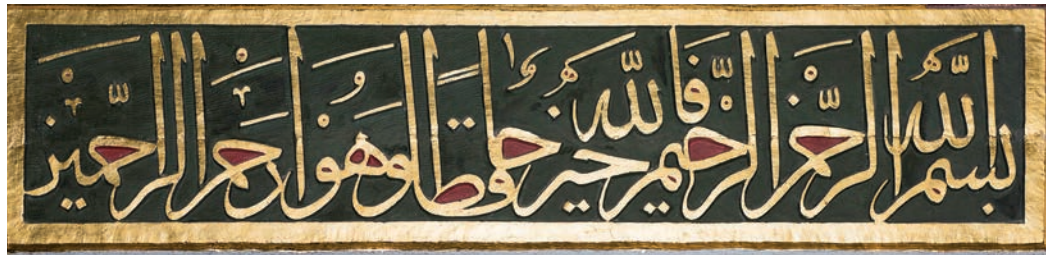 بسم الله الرحمن الرحيم فالله خير حافظا وهو ارحم الراحمين